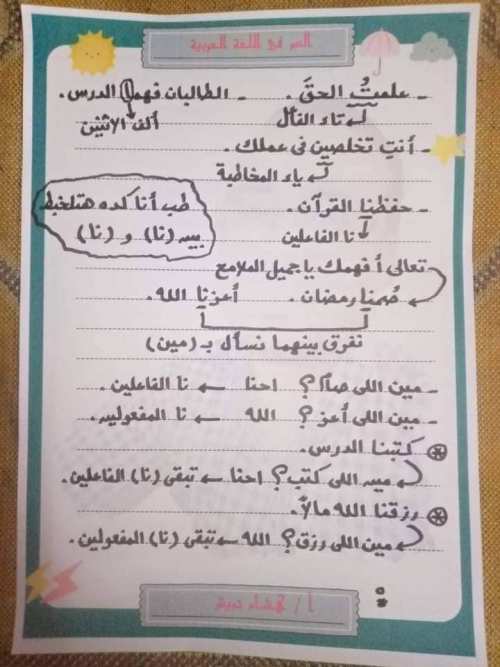 السر فى اللغة العربية
- علمتُ الحقَ. - الطالبان فهما الدرس.
تاء الفاعل ألف الاثنين
- أنتِ تخلصين فى عملك.
ياء المخاطبة
- حفظنا القرآن.
نا الفاعلين
طب أنا كده هتلخبط
بين (نا) و (نا)
تعالى أفهمك يا جميل الملامح
صُمنا رمضان. أعزنا الله.
نفرق بينهما نسأل بـ (مين)
- مين اللى صام؟ احنا ← نا الفاعلين.
- مين اللى أعز؟ الله ← نا المفعولين.
كتبنا الدرس.
مين اللى كتب؟ احنا ← تبقى (نا) الفاعلين.
رزقنا الله مالاً.
مين اللى رزق؟ الله ← تبقى (نا) المفعولين.
أ /